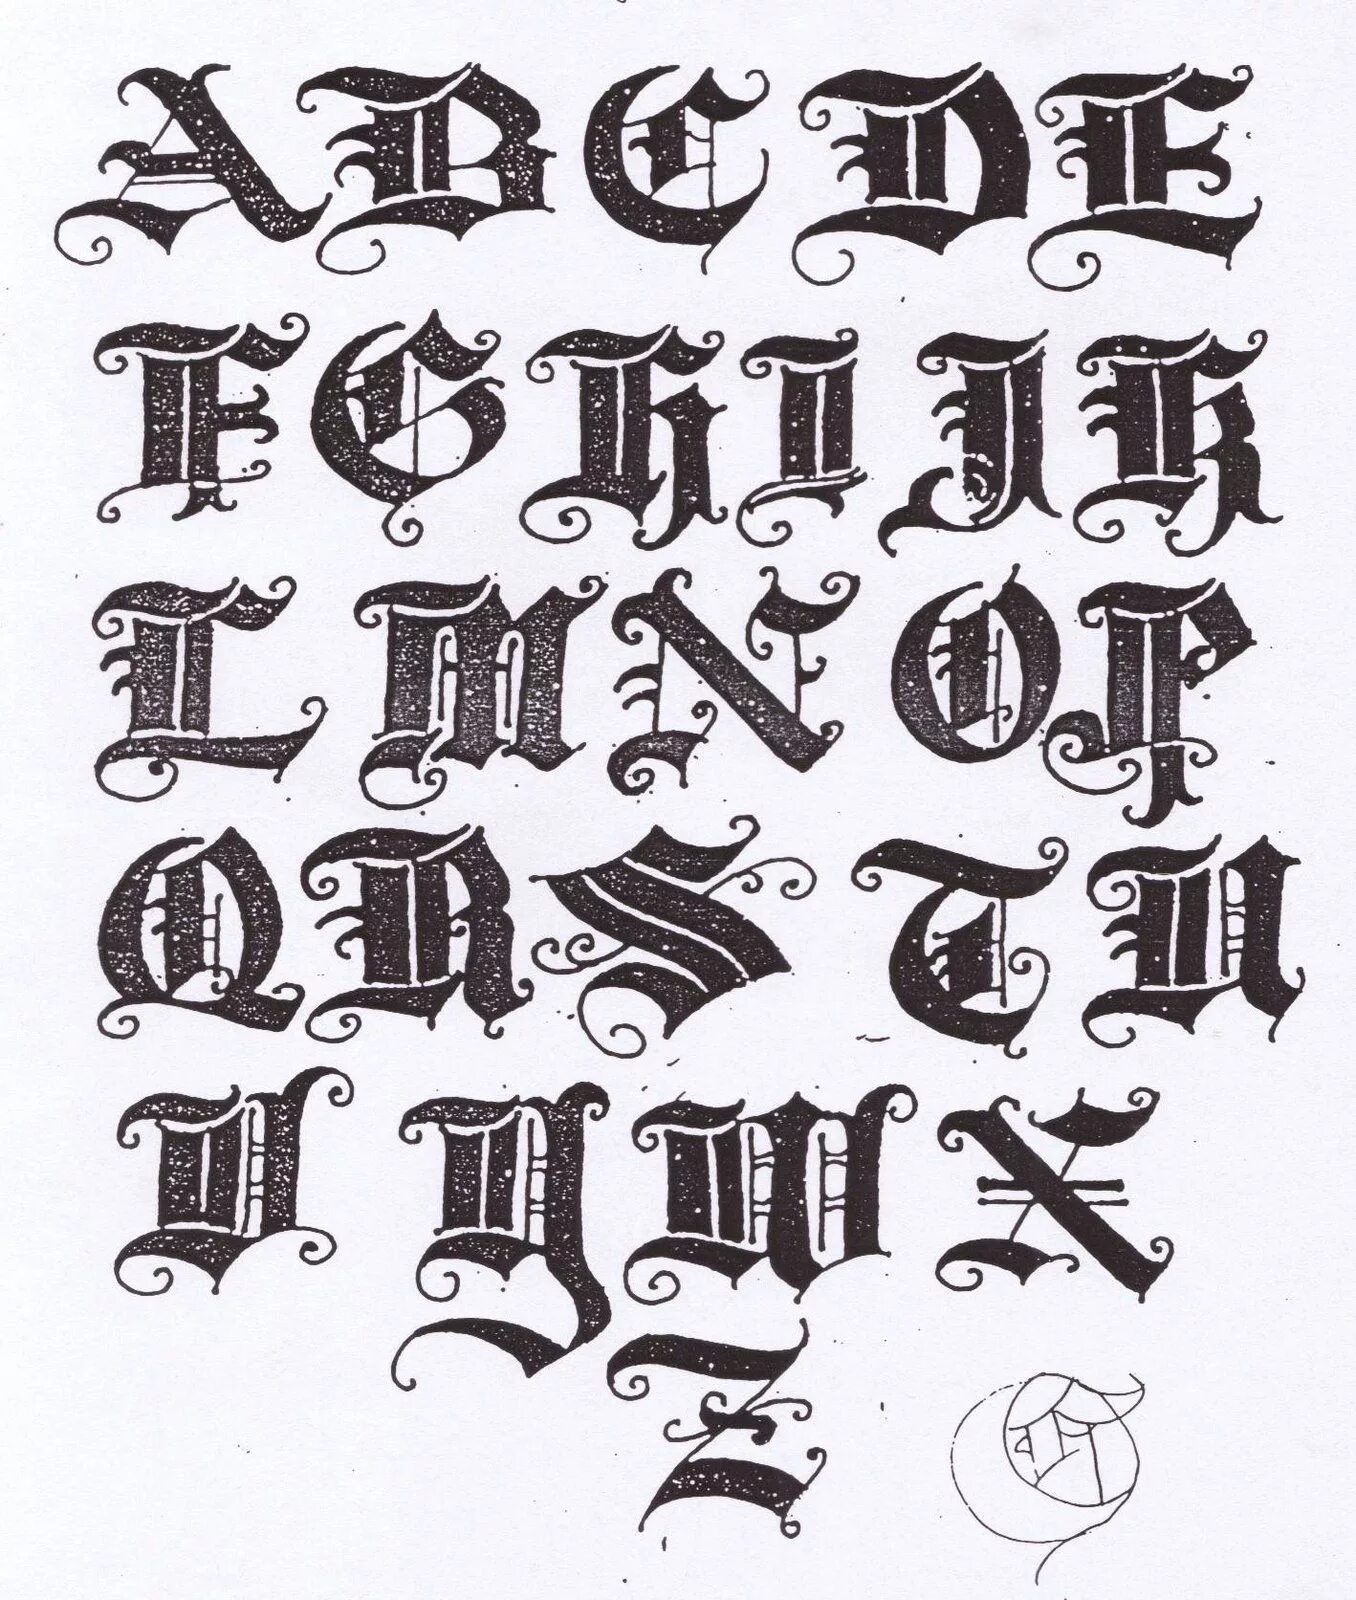 A B C D E
F G H I J K
L M N O P
Q R S T U
V Y W X
Z